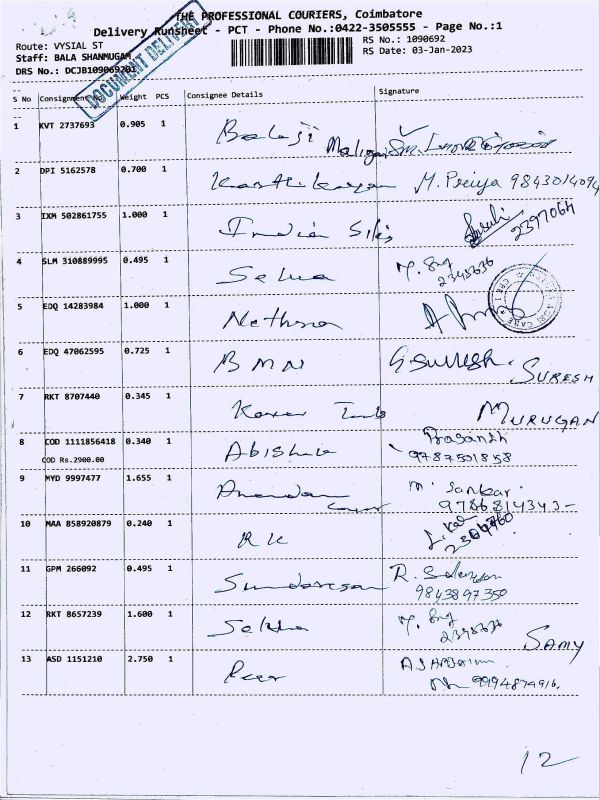 THE PROFESSIONAL COURIERS, Coimbatore
Delivery Runsheet - PCT - Phone No.:0422-3505555 - Page No.:1
Route: VYSIAL ST
RS No.: 1090692
Staff: BALA SHANMUGAM
RS Date: 03-Jan-2023
DRS No.: DCJB109069201
DOCUMENT DELIVERY
S No Consignment No Weight PCS Consignee Details Signature
1 KVT 2737693 0.905 1 Balaji
2 DPI 5162578 0.700 1 Karthikeyan M. Priya 9843014094
3 IXM 502861755 1.000 1 India Silks 2397064
4 SLM 310889995 0.495 1 Selva
5 EDQ 14283984 1.000 1 Nethra
6 EDQ 47062595 0.725 1 BMN G. Suresh. SURESH
7 RKT 8707440 0.345 1 MURUGAN
8 COD 1111856418 0.340 1 Prasandh
COD Rs.2900.00 9787501858
9 MYD 9997477 1.655 1 Anandan M. Sankar
9786814343-
10 MAA 858920879 0.240 1 RK
11 GPM 266092 0.495 1 Sundaresan R.
9843897350
12 RKT 8657239 1.600 1 SAMY
13 ASD 1151210 2.750 1
9994874916.
12